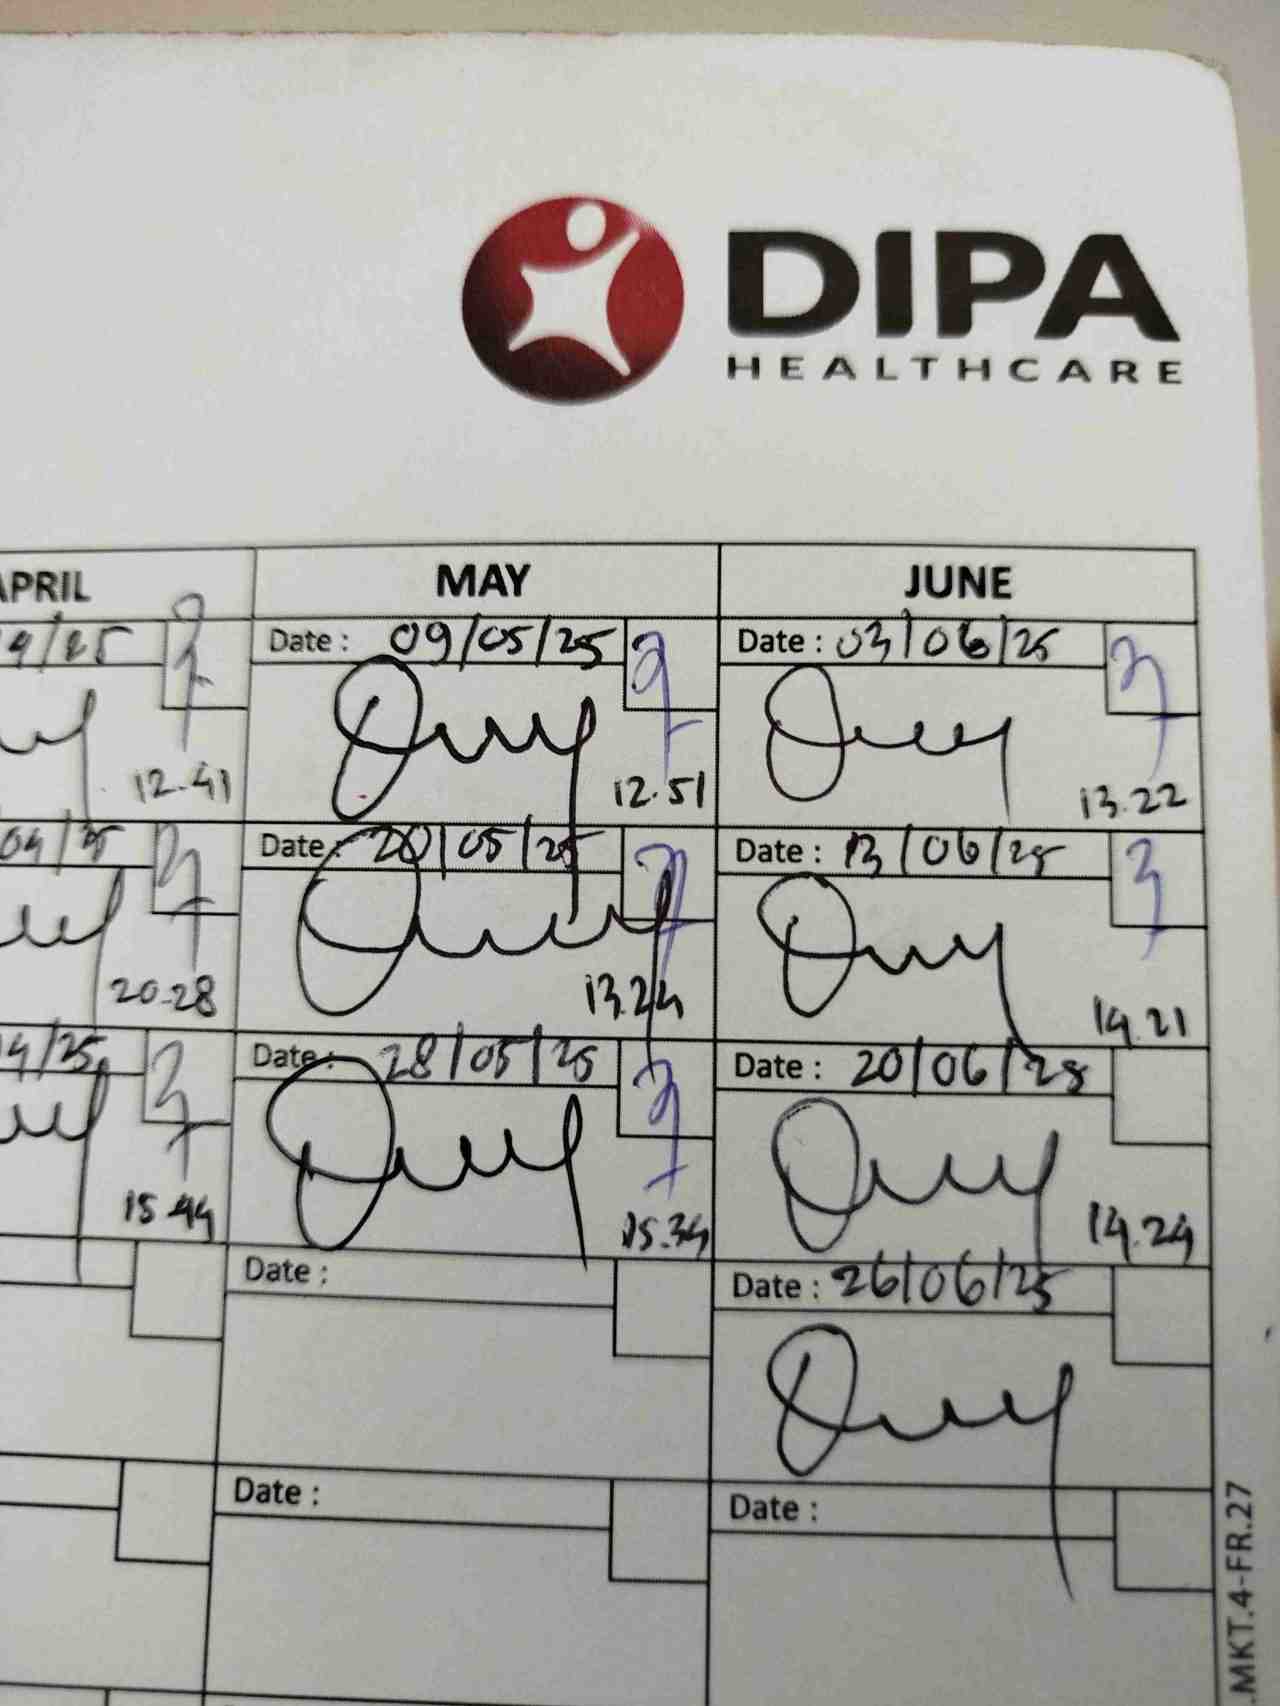 DIPA
HEALTHCARE
APRIL MAY JUNE
4/25 Date : 09/05/25 Date : 03/06/25
12.41 12.51 13.22
04/25 Date : 20/05/25 Date : 13/06/25
20.28 13.24 14.21
4/25 Date : 28/05/25 Date : 20/06/25
15.44 15.34 14.24
Date : Date : 26/06/25
Date : Date :
.MKT.4-FR.27